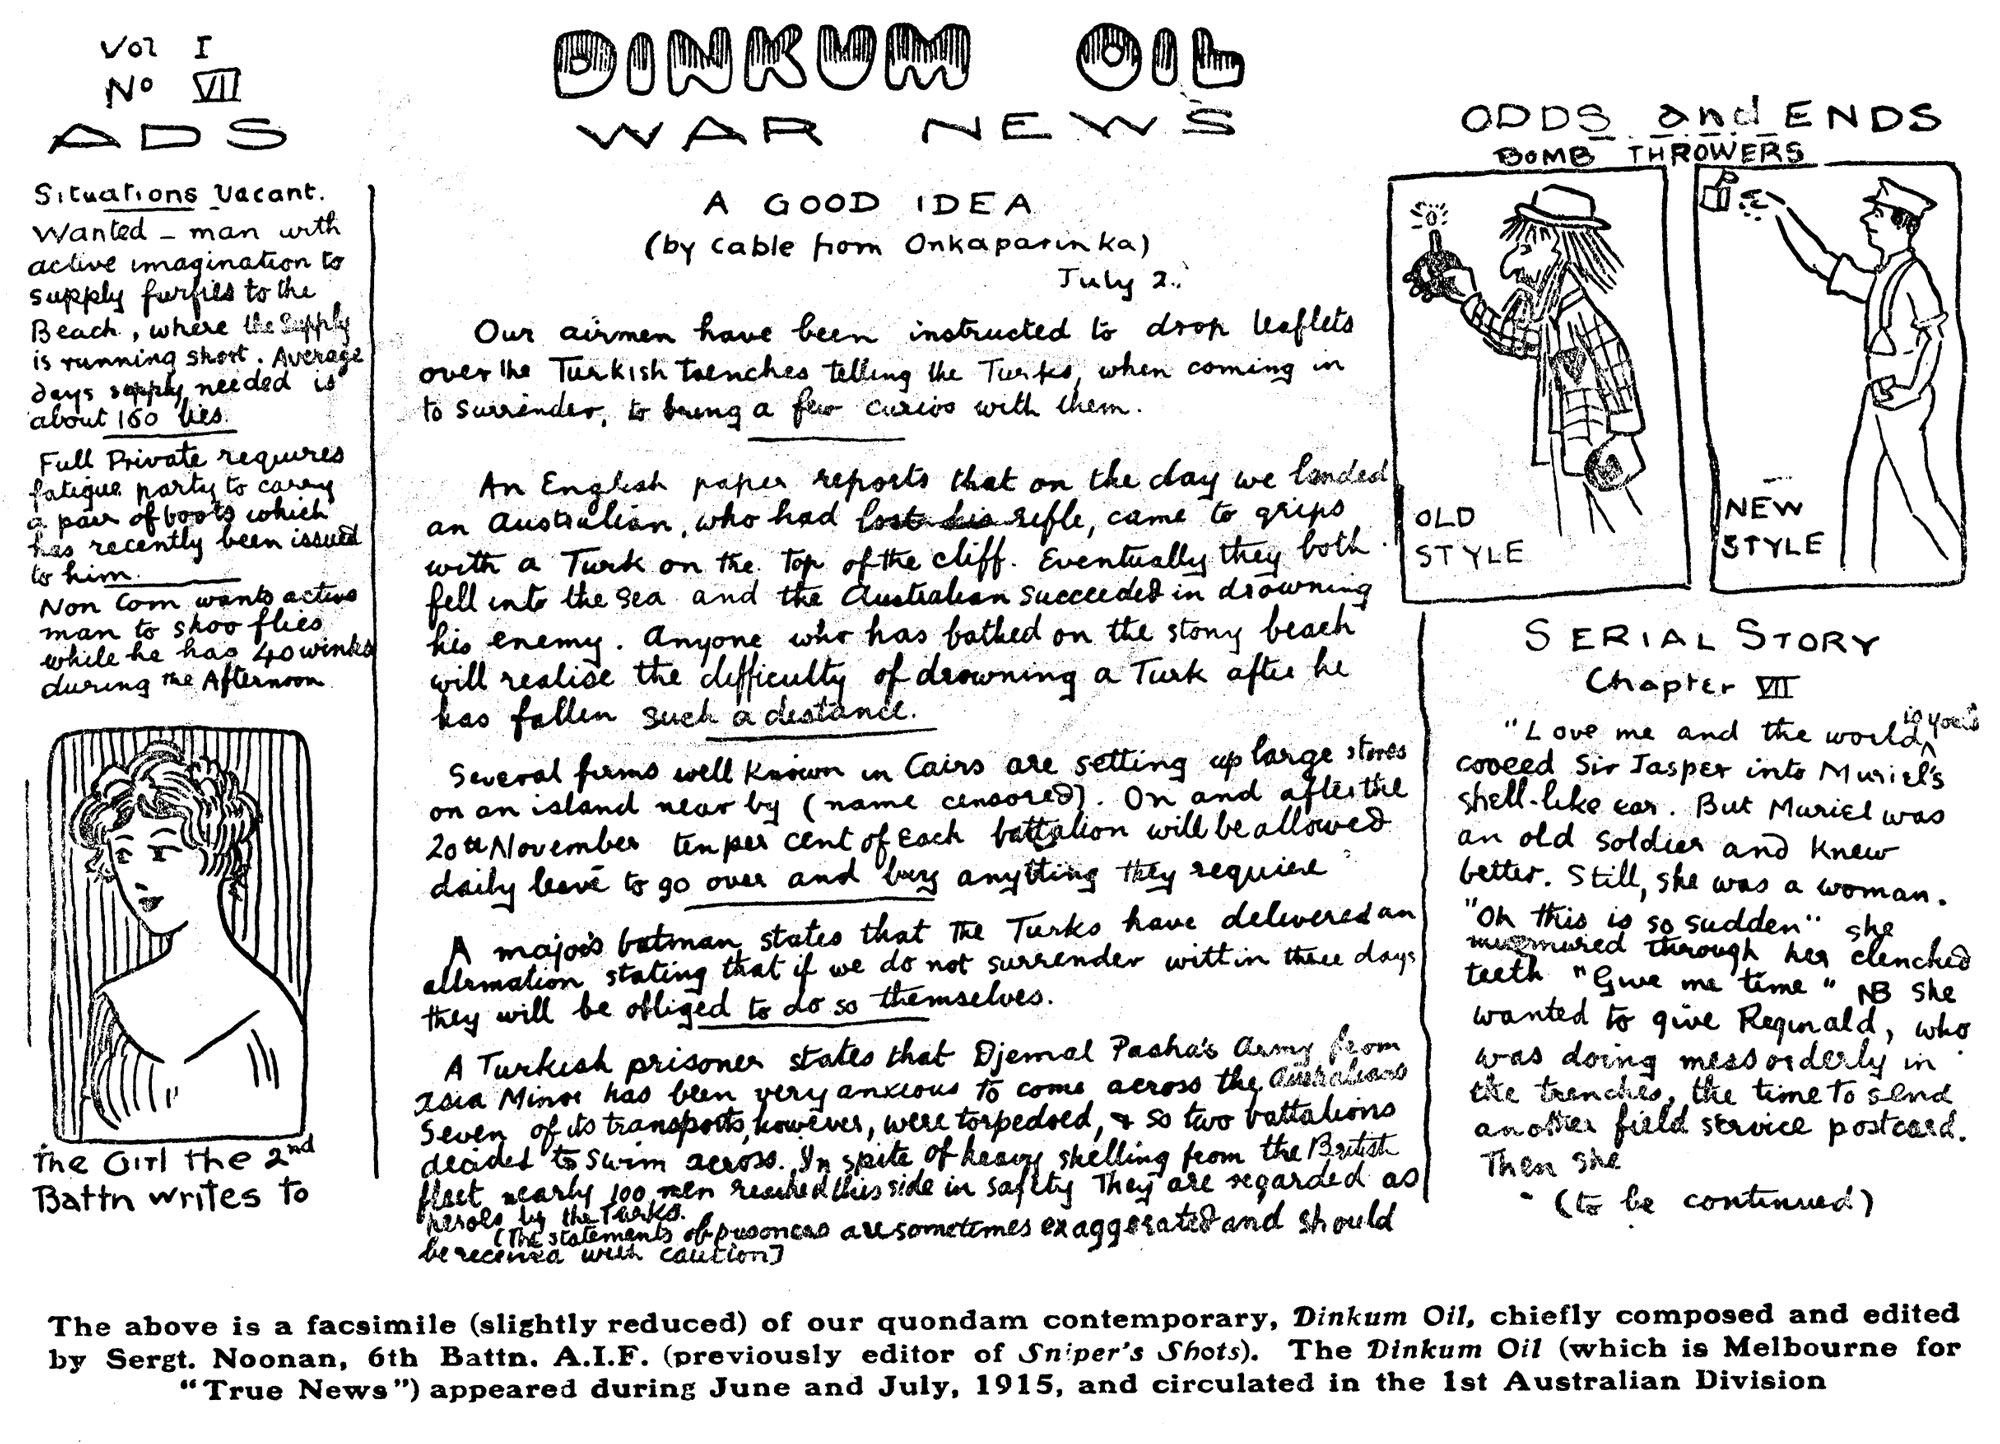 Vol I
No VII
ADS
Situations Vacant.
Wanted - man with
active imagination to
supply furfies to the
Beach, where the Supply
is running short. Average
days supply needed is
about 160 lies.
Full Private requires
fatigue party to carry
a pair of boots which
has recently been issued
to him.
Non Com wants active
man to shoo flies
while he has 40 winks
during the Afternoon
The Girl the 2nd
Battn writes to
DINKUM OIL
WAR NEWS
A GOOD IDEA
(by cable from Onkaparinka)
July 2.
Our airmen have been instructed to drop leaflets
over the Turkish trenches telling the Turks, when coming in
to surrender, to bring a few curios with them.
An English paper reports that on the day we landed
an Australian, who had lost his rifle, came to grips
with a Turk on the top of the cliff. Eventually they both
fell into the sea and the Australian succeeded in drowning
his enemy. Anyone who has bathed on the stony beach
will realise the difficulty of drowning a Turk after he
has fallen such a distance.
Several firms well known in Cairo are setting up large stores
on an island near by (name censored). On and after the
20th November ten per cent of each battalion will be allowed
daily leave to go over and buy anything they require
A major's batman states that the Turks have delivered an
state stating that if we do not surrender within three days
they will be obliged to do so themselves.
A Turkish prisoner states that Djemal Pasha's Army from
Asia Minor has been very anxious to come across the Australians
Seven of its transports, however, were torpedoed, & so two battalions
decided to swim across. In spite of heavy shelling from the British
fleet nearly 100 men reached this side in safety They are regarded as
heroes by the Turks.
(The statements of prisoners are sometimes exaggerated and should
be received with caution]
ODDS and ENDS
BOMB THROWERS
OLD
STYLE
NEW
STYLE
SERIAL STORY
Chapter VII
"Love me and the world is yours
cooeed Sir Jasper into Muriel's
shell-like ear. But Muriel was
an old soldier and knew
better. Still, she was a woman.
"Oh this is so sudden" she
murmured through her clenched
teeth "Give me time" NB She
wanted to give Reginald, who
was doing mess orderly in
the trenches, the time to send
another field service postcard.
Then she
(to be continued)
The above is a facsimile (slightly reduced) of our quondam contemporary, Dinkum Oil, chiefly composed and edited
by Sergt. Noonan, 6th Battn. A.I.F. (previously editor of Sniper's Shots). The Dinkum Oil (which is Melbourne for
"True News") appeared during June and July, 1915, and circulated in the 1st Australian Division